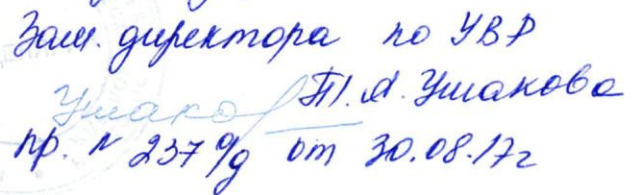 Зам. директора по УВР
Ушако Т. А. Ушакова
пр. № 237 о/д от 30.08.17г